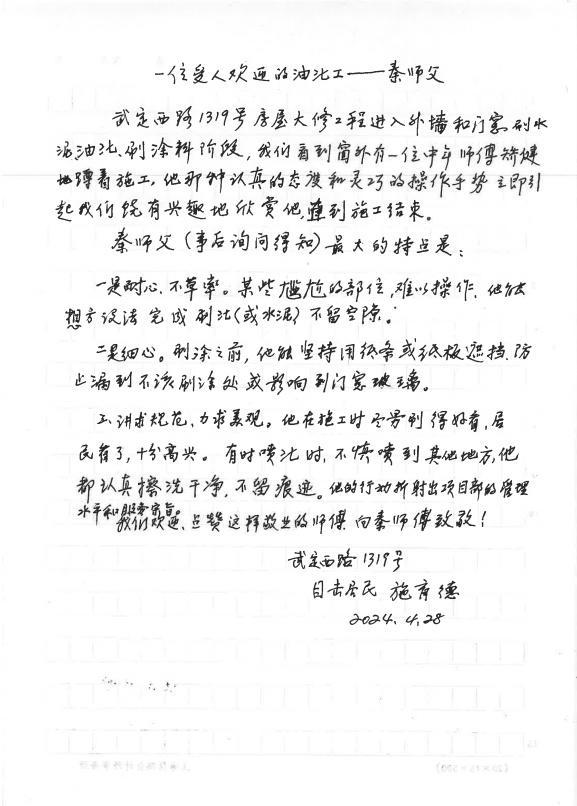 一位受人欢迎的油漆工——秦师父
武定西路1319号房屋大修工程进入外墙和门窗刷水
泥油漆、刷涂料阶段,我们看到窗外有一位中年师傅矫健
地蹲着施工,他那种认真的态度和灵巧的操作手势立即引
起我们饶有兴趣地欣赏他,直到施工结束。
秦师父(事后询问得知)最大的特点是:
一是耐心、不草率。某些尴尬的部位,难以操作,他能
想方设法完成刷漆(或水泥)不留空隙。
二是细心。刷涂之前,他能坚持用纸条或纸板遮挡、防
止漏到不该刷涂处或影响到门窗玻璃。
三、讲求规范、力求美观。他在施工时尽量刷得好看,居
民看了,十分高兴。有时喷漆时,不慎喷到其他地方,他
都认真擦洗干净,不留痕迹。他的行动折射出项目部的管理
水平和服务宗旨。
我们欢迎、点赞这样敬业的师傅,向秦师傅致敬!
武定西路1319号
目击居民 施育德
2024.4.28
(20×15=300)